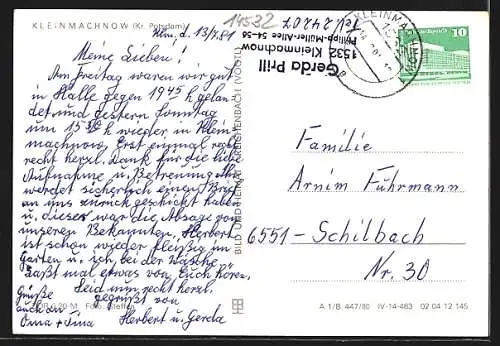 KLEINMACHNOW (Kr. Potsdam)
Klm, d. 13/7.81
Meine Lieben!
Am Freitag waren wir gut
in Halle gegen 19 45 h gelan-
det und gestern Sonntag
um 15 h wieder in Klein
machnow. Erst einmal recht
recht herzl. Dank für die liebe
Aufnahme u. Betreuung. Ihr
werdet sicherlich einen Brief
an uns zurück geschickt haben
u. dieser war die Absage von
unseren Bekannten. Herbert
ist schon wieder fleißig im
Garten u. ich bei der Wäsche
laßt mal etwas von Euch hören.
Seid nun recht herzl.
gegrüßt von
Herbert u. Gerda
Grüße
auch an
Oma + Tina
14532
Tel. 24207
Gerda Prill
1532 Kleinmachnow
Philipp-Müller-Allee 54-56
KLEINMACHNOW
10
BILD UND HEIMAT REICHENBACH (VOGTL)
Familie
Arnim Fuhrmann
6551-Schilbach
Nr. 30
A 1/B 447/80 IV-14-483 02 04 12 145